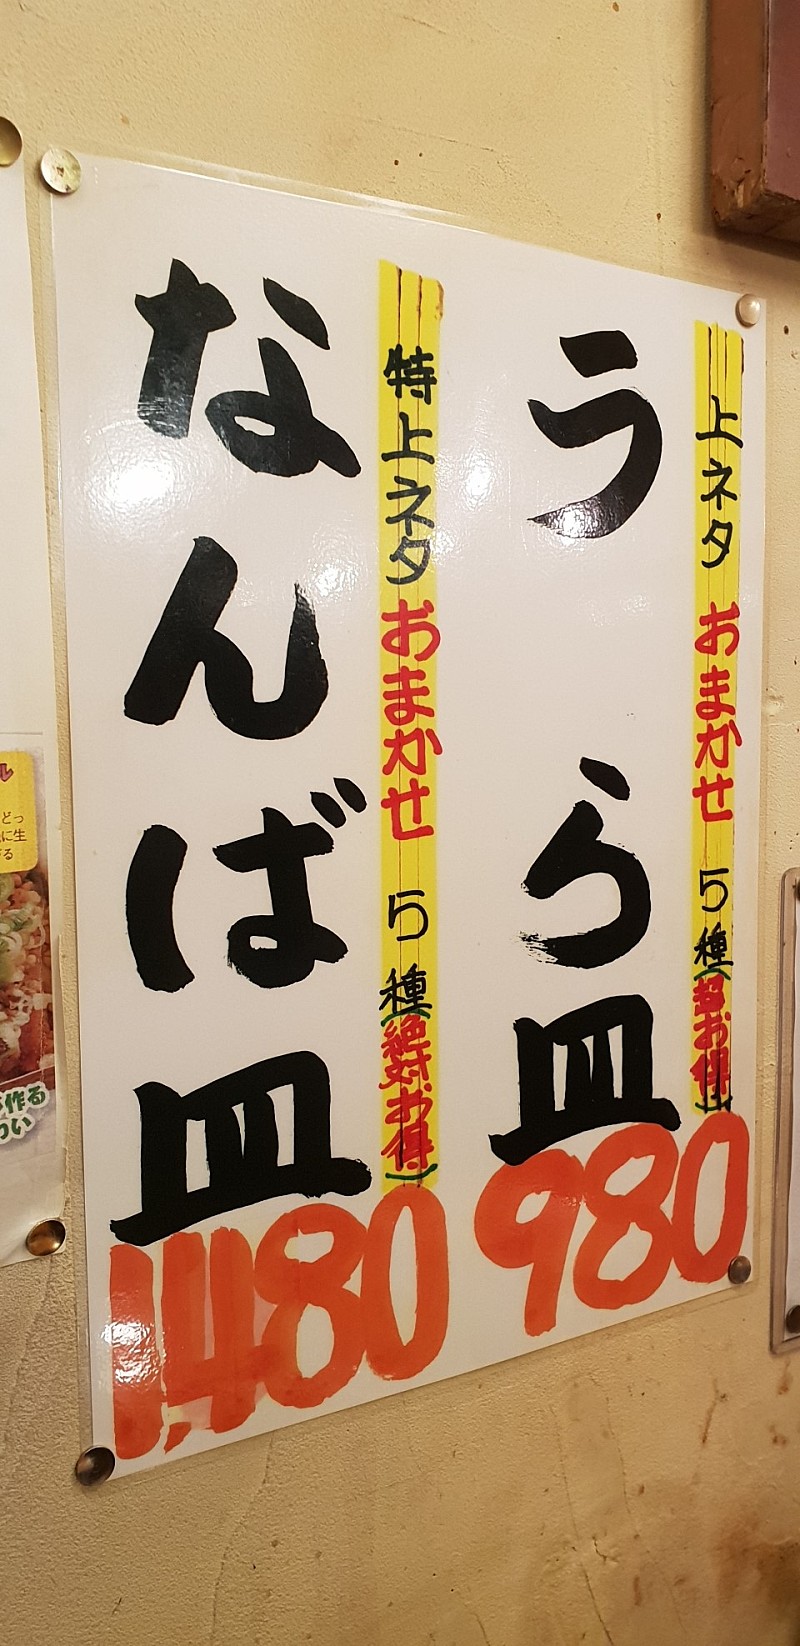 上ネタ おまかせ 5種(超お得)
うら皿
980
特上ネタ おまかせ 5種(絶対お得)
なんば皿
1,480
ル
どっ
に生
る
作る
わい